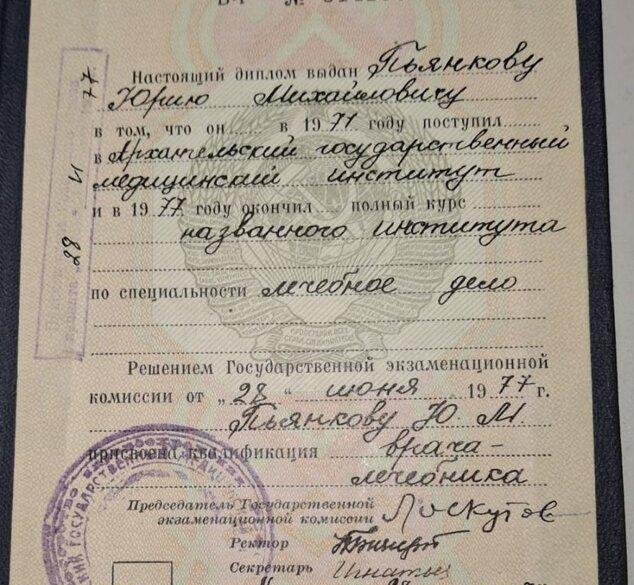 Настоящий диплом выдан Пьянкову
Юрию Михайловичу
в том, что он в 1971 году поступил
в Архангельский государственный
медицинский институт
и в 1977 году окончил полный курс
названного института
по специальности лечебное дело
Решением Государственной экзаменационной
комиссии от „28" июня 1977 г.
Пьянкову Ю. М.
присвоена квалификация врача-
лечебника
Председатель Государственной
экзаменационной комиссии Лоскутов
Ректор
Секретарь Игнатьев
77
28